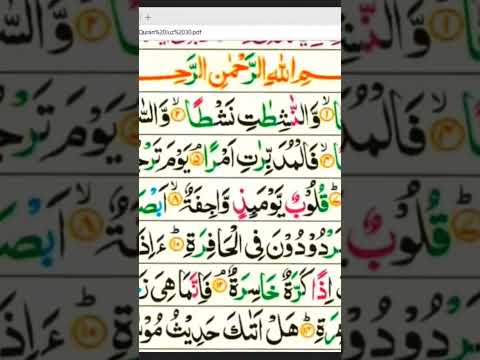 Quran%20Juz%2030.pdf
اللهِ الرَّحْمٰنِ الرَّحِـ
وَّالنّٰشِطٰتِ نَشْطًا ۙ۲ وَّالسّٰـ
فَالْمُدَبِّرٰتِ اَمْرًا ۘ۵ يَوْمَ تَرْجُـ
قُلُوْبٌ يَّوْمَىِٕذٍ وَّاجِفَةٌ ۙ۸ اَبْصَـ
ـرْدُوْدُوْنَ فِى الْحَافِرَةِ ؕ۱۰ ءَاِذَا
اِذًا كَرَّةٌ خَاسِرَةٌ ۘ۱۲ فَاِنَّمَا هِىَ زَ
ـرَةِ ؕ۱۴ هَلْ اَتٰىكَ حَدِيْثُ مُوْسٰـ